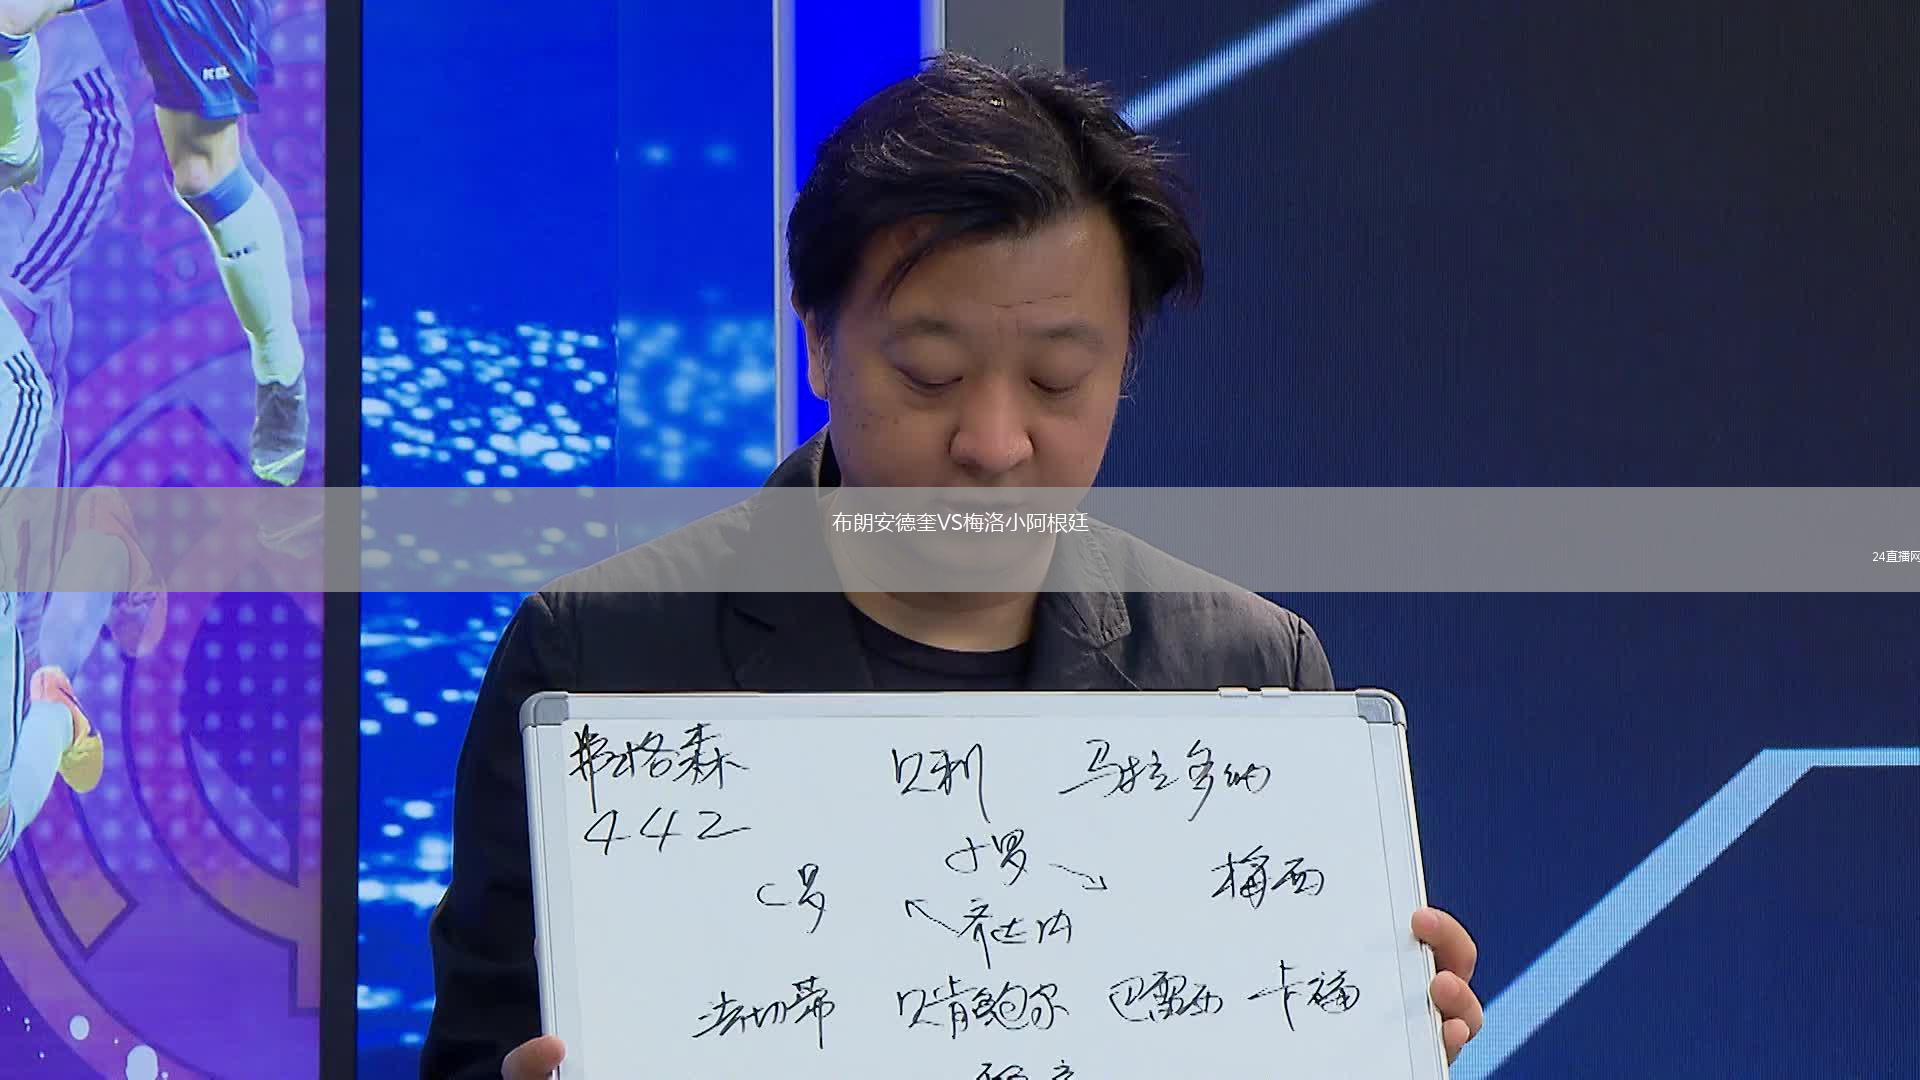 布朗安德奎VS梅洛小阿根廷
24直播网
弗格森 贝利 马拉多纳
442
小罗
C罗 梅西
齐达内
法切蒂 贝肯鲍尔 巴雷西 卡福